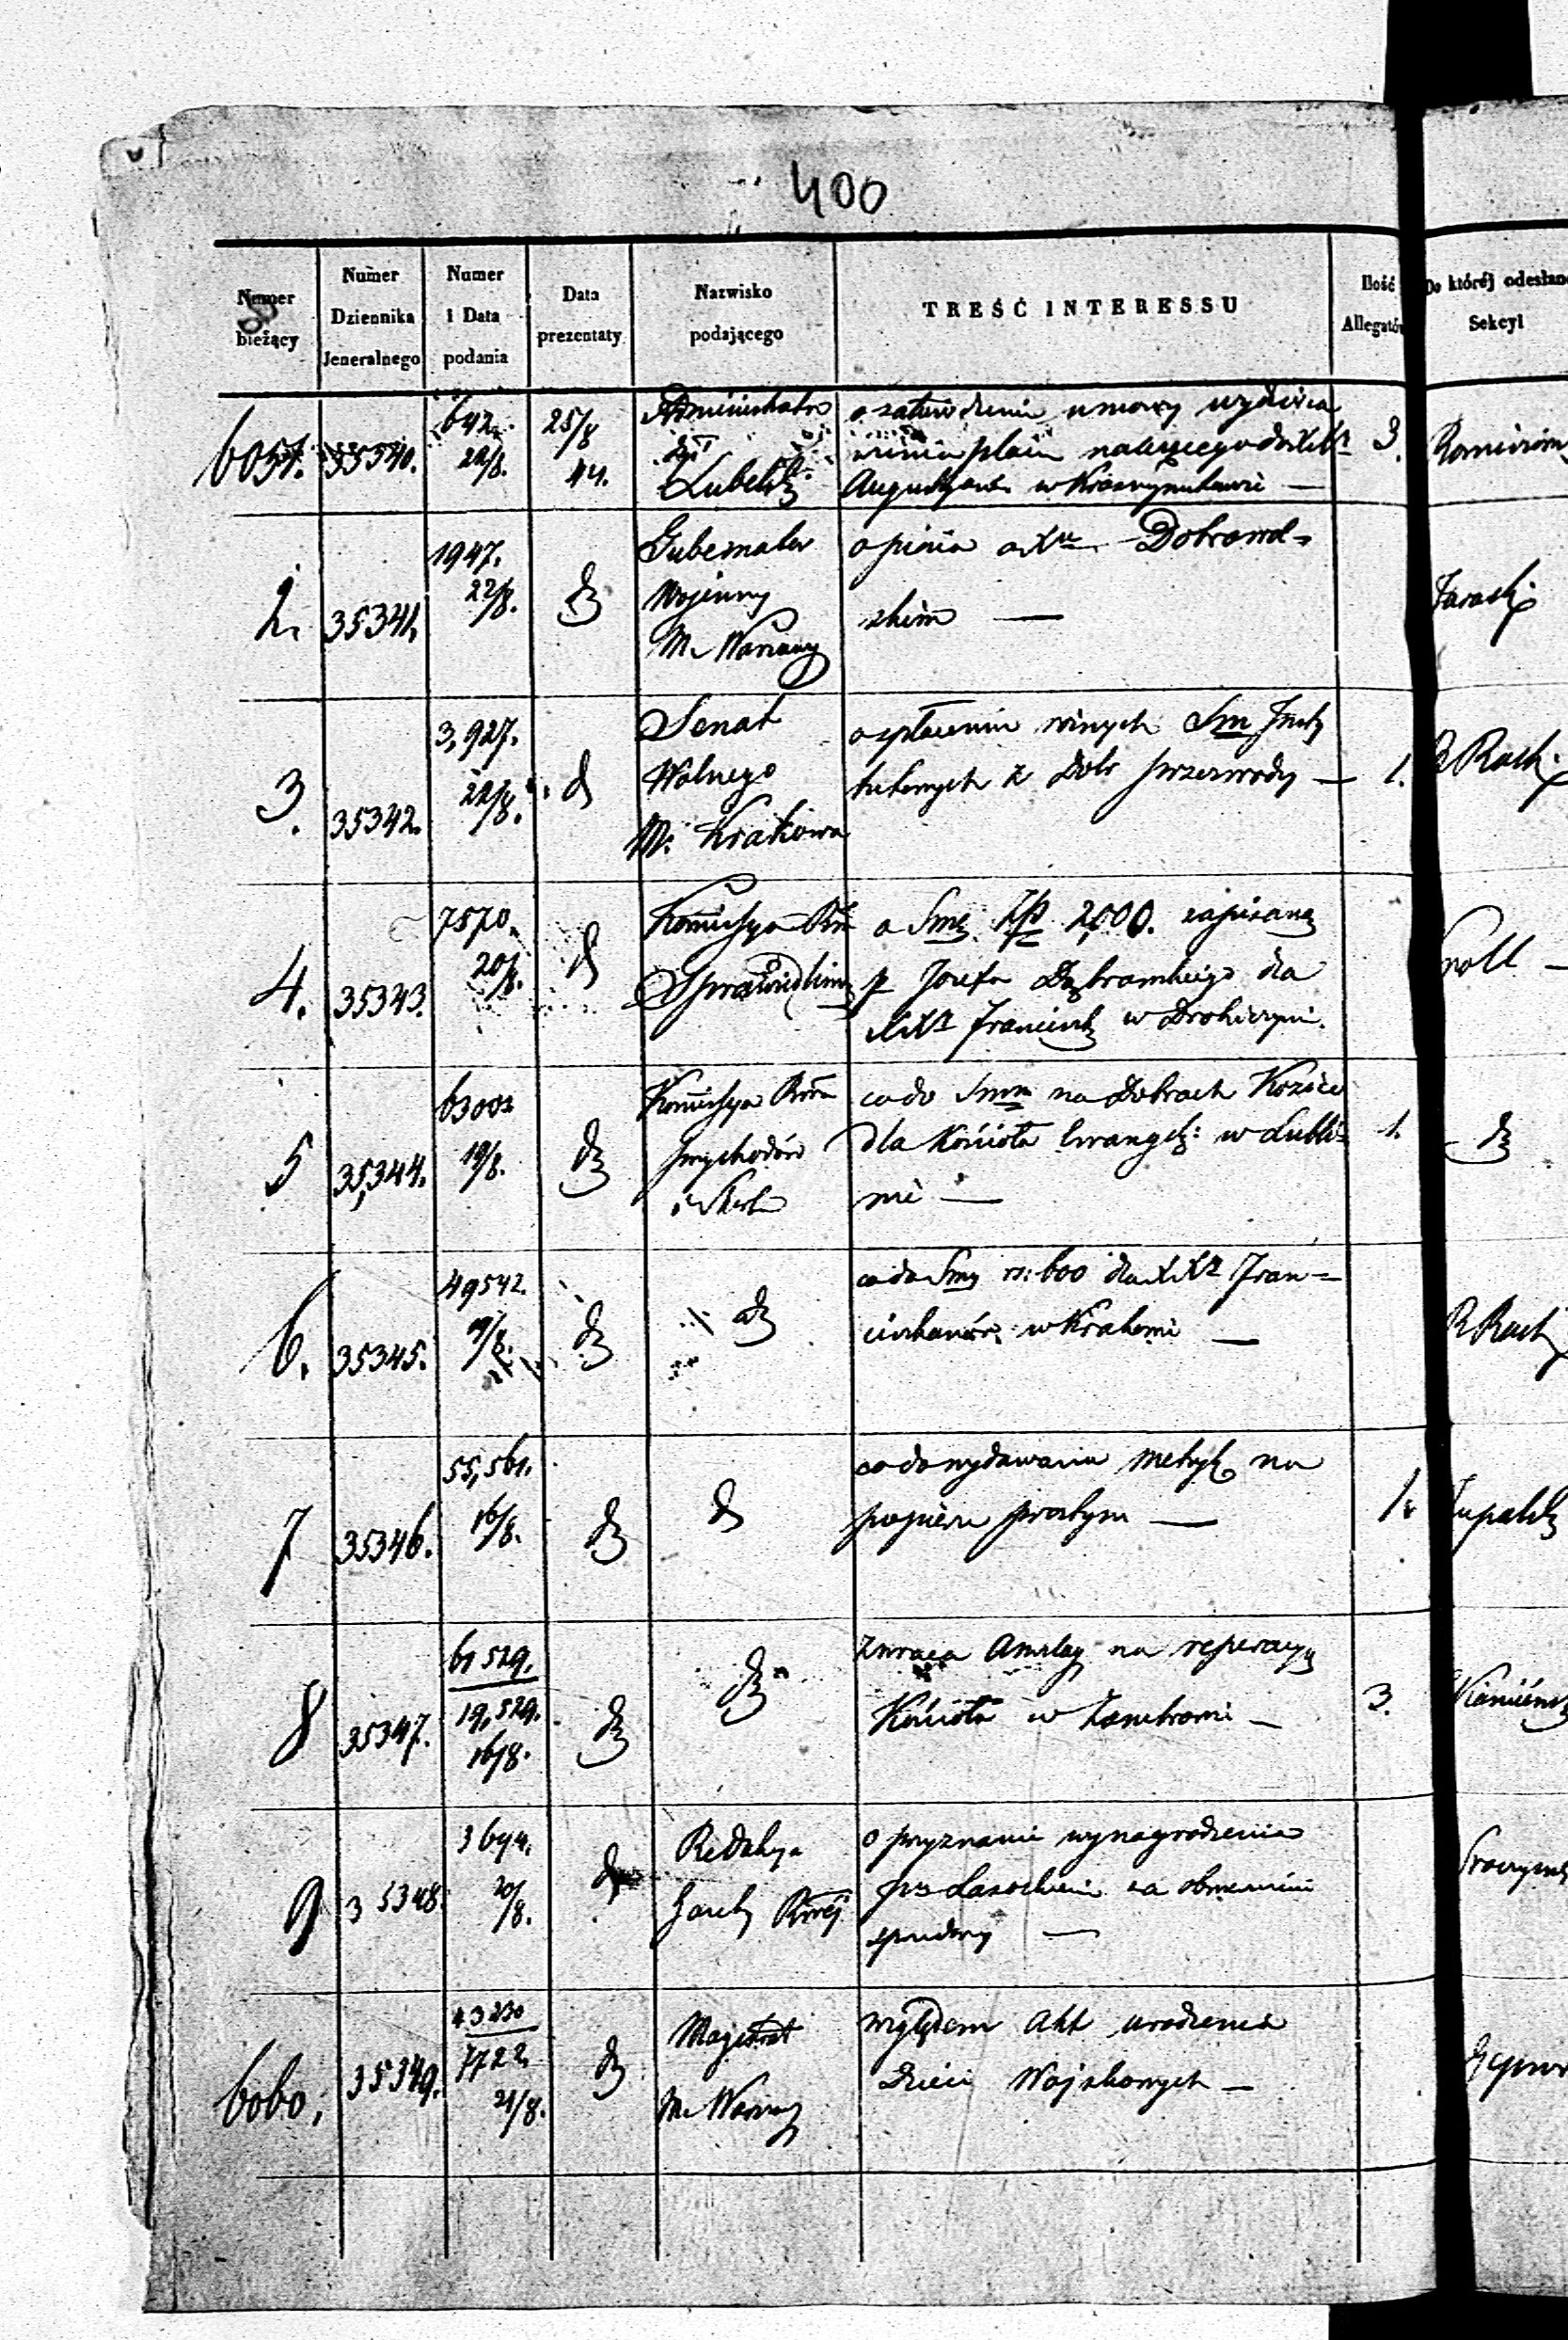 400
Numer bieżący
Numer Dziennika Jeneralnego
Numer i Data podania
Data prezentaty
Nazwisko podającego
TREŚĆ INTERESSU
Ilość Allegatów
Do któréj odesłano Sekcyi
6051. 35340. 642. 22/8. 25/8 44. Administrator
Lubelsk
o zatwierdzenie umowy wydzierża
wienia placu należącego do XX
Augustyanów w Krasnymstawie —
3.
2. 35341. 1947. 22/8. d
Gubernator
Wojenny
M. Warszawy
opinia o Xu Dobrowol-
skim —
3. 35342. 3,927. 22/8. d
Senat
Wolnego
M. Krakowa
o spłacenie różnych Sm Insty
tutowych z Dóbr Przezwody —
1. R Rach.
4. 35343. 7570. 20/8. d
Kommissya Rzą
Sprawiedliw
o Smę Złp 2,000. zapisaną
p Józefa Dąbrowskiego dla
XX Francisz w Drohiczyni.
5 35,344. 63002 19/8. d
Kommissya Rzą
Przychodów
i Skarb
co do Smm na Dobrach Kozice
dla Kościoła Ewangel: w Lubli-
nie —
1. d
6. 35345. 49542. 19/8. d d
co do Smy rs: 600 dla XX Fran-
ciszkanów w Krakowie —
R Rach
7 35346. 55,561. 16/8. d d
co do wydawania Metryk na
papierze prostym —
1.
8 35347. 61529. 19,529. 16/8. d d
zwraca Anszlag na reperacyą
Kościoła w Zambrowie —
3.
9 35348. 3694. 20/8. d
Redakcya
Gazety Rząwéj
o przyznanie wynagrodzenia
za obwieszczenie
6060. 35349. 43230 7722 21/8. d
Magistrat
M. Warszawy
względem Akt urodzenia
dzieci Wojskowych —